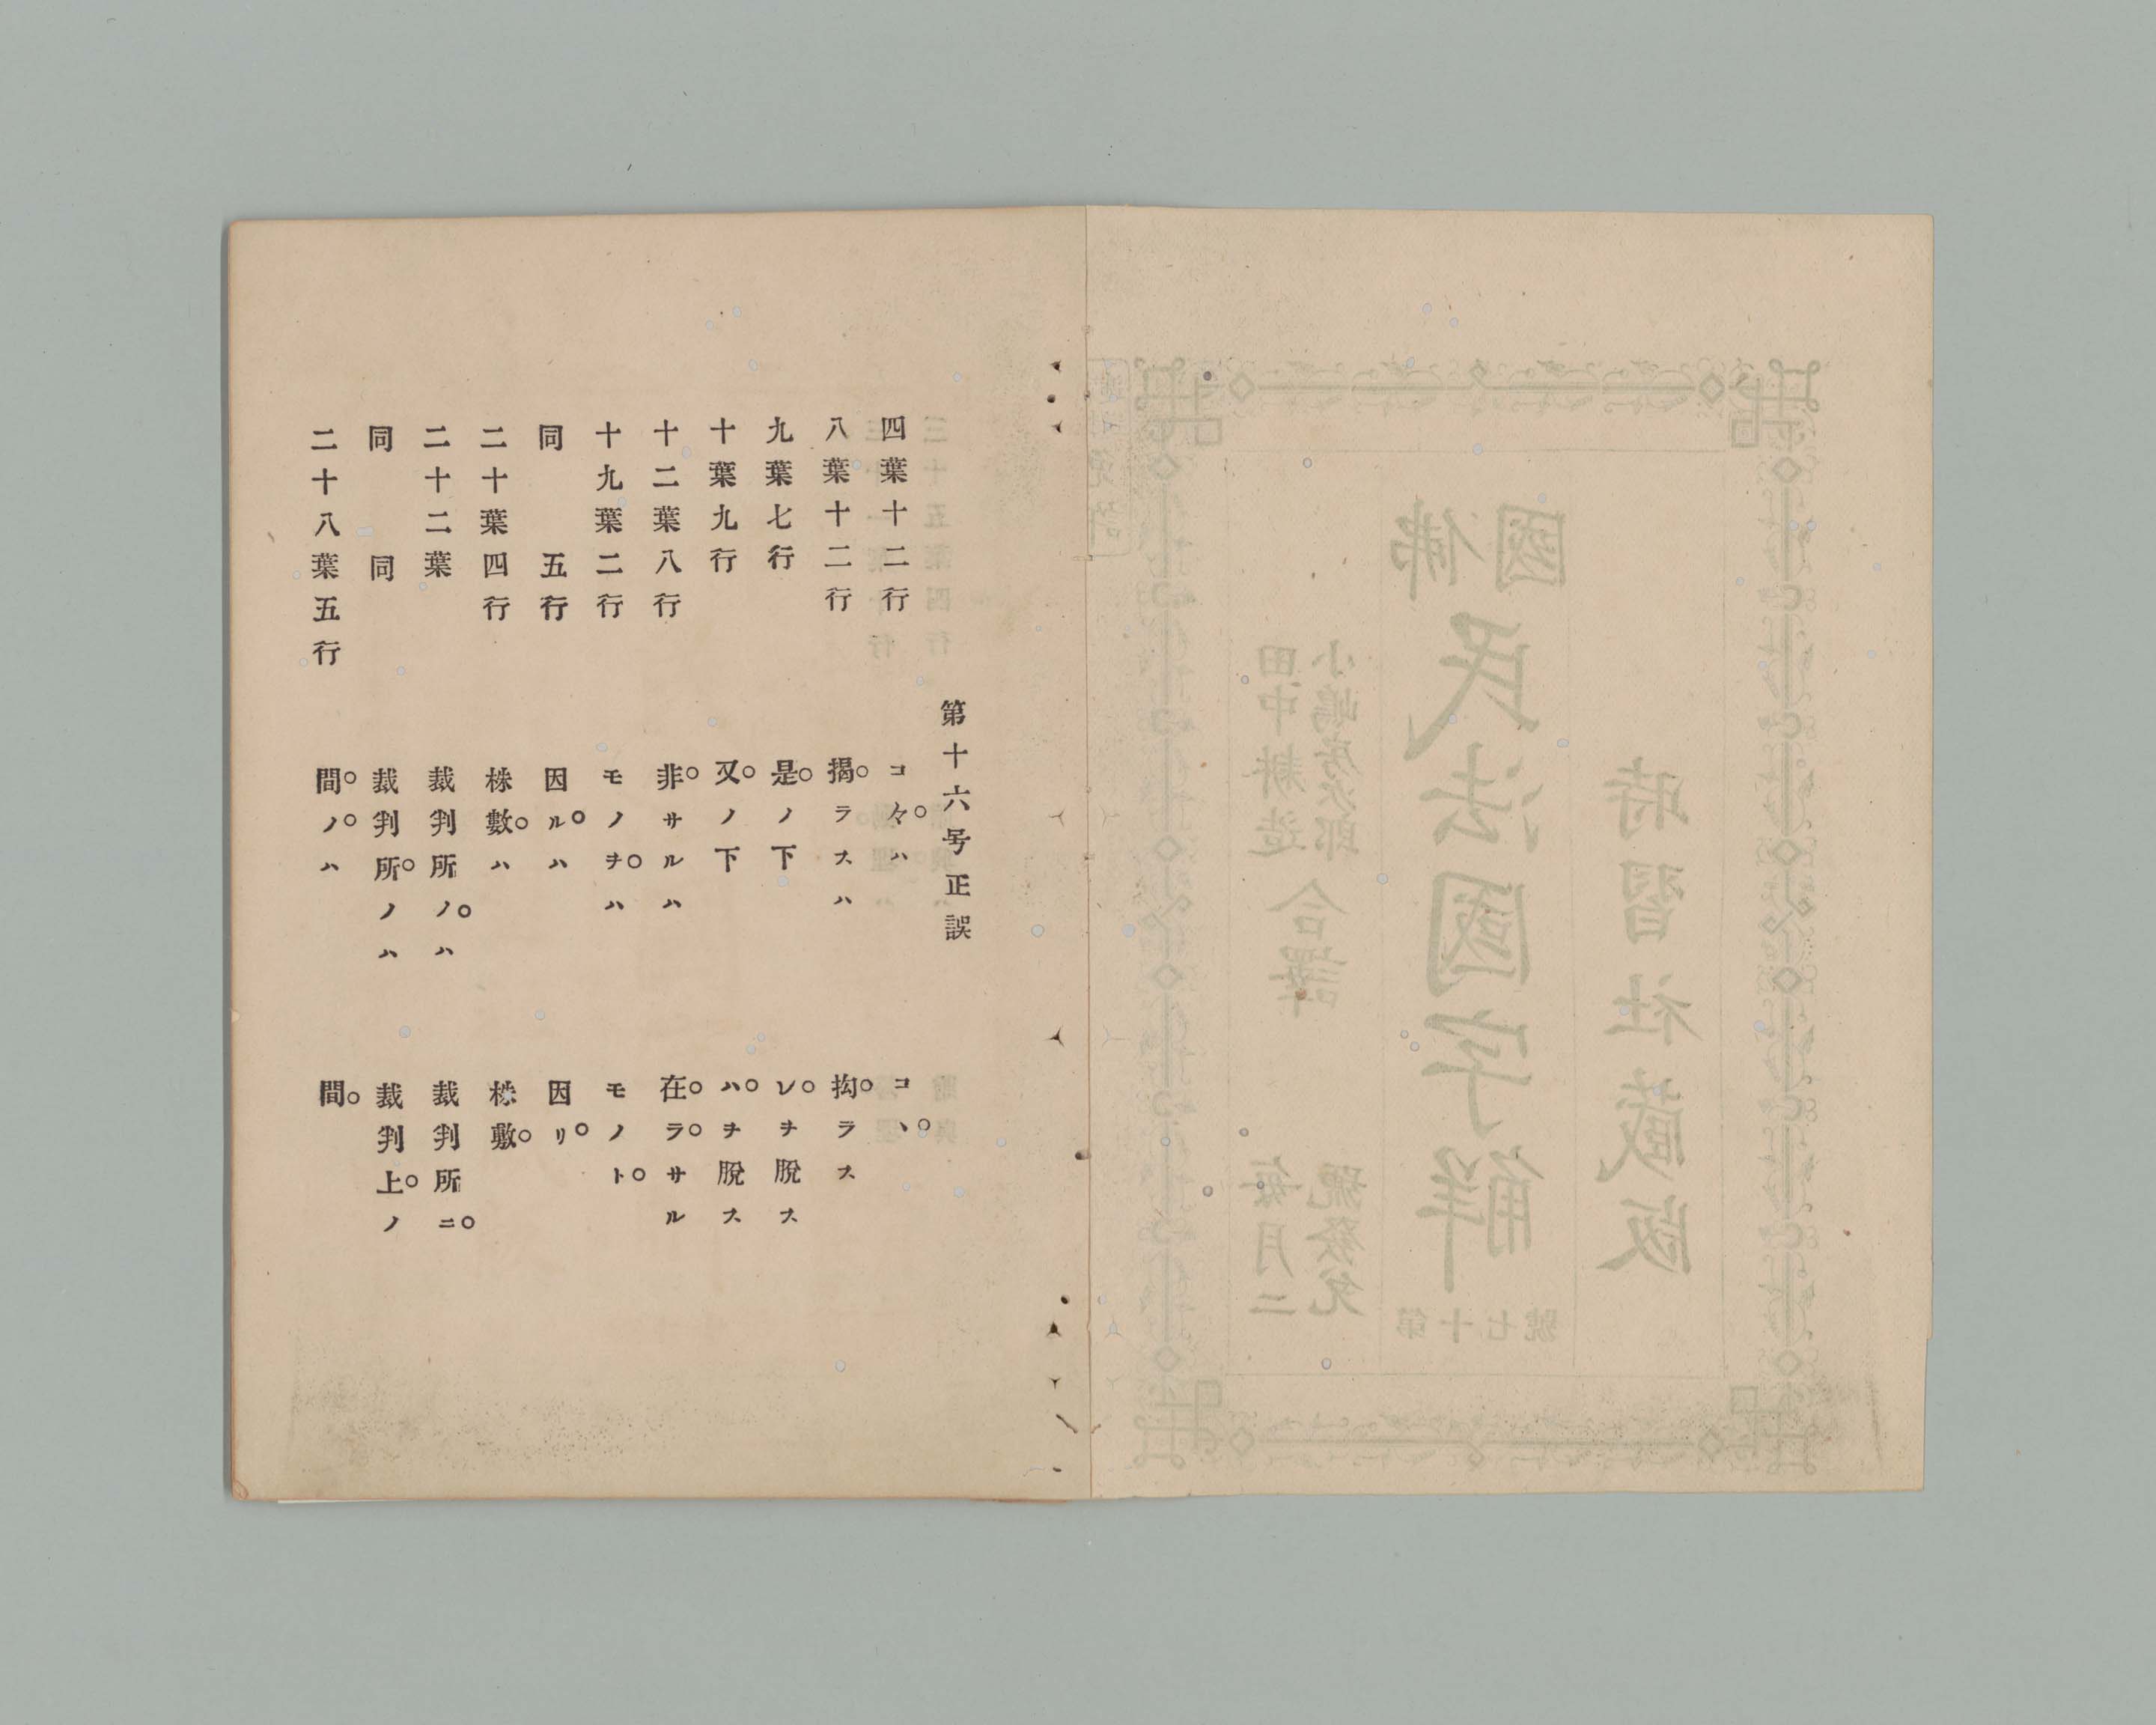 時習社蔵版
佛國
民法國字解
第十七號
小嶋房次郎
田中耕造
合譯
毎月二
號發兌
第十六号正誤
四葉十二行　コ々ハ　コヽ
八葉十二行　揭ラスハ　拘ラス
九葉七行　是ノ下　レヲ脱ス
十葉九行　又ノ下　ハヲ脱ス
十二葉八行　非サルハ　在ラサル
十九葉二行　モノヲハ　モノト
同　五行　因ルハ　因リ
二十葉四行　株數ハ　株敷
二十二葉　裁判所ノハ　裁判所ニ
同　同　裁判所ノハ　裁判上ノ
二十八葉五行　間ノハ　間